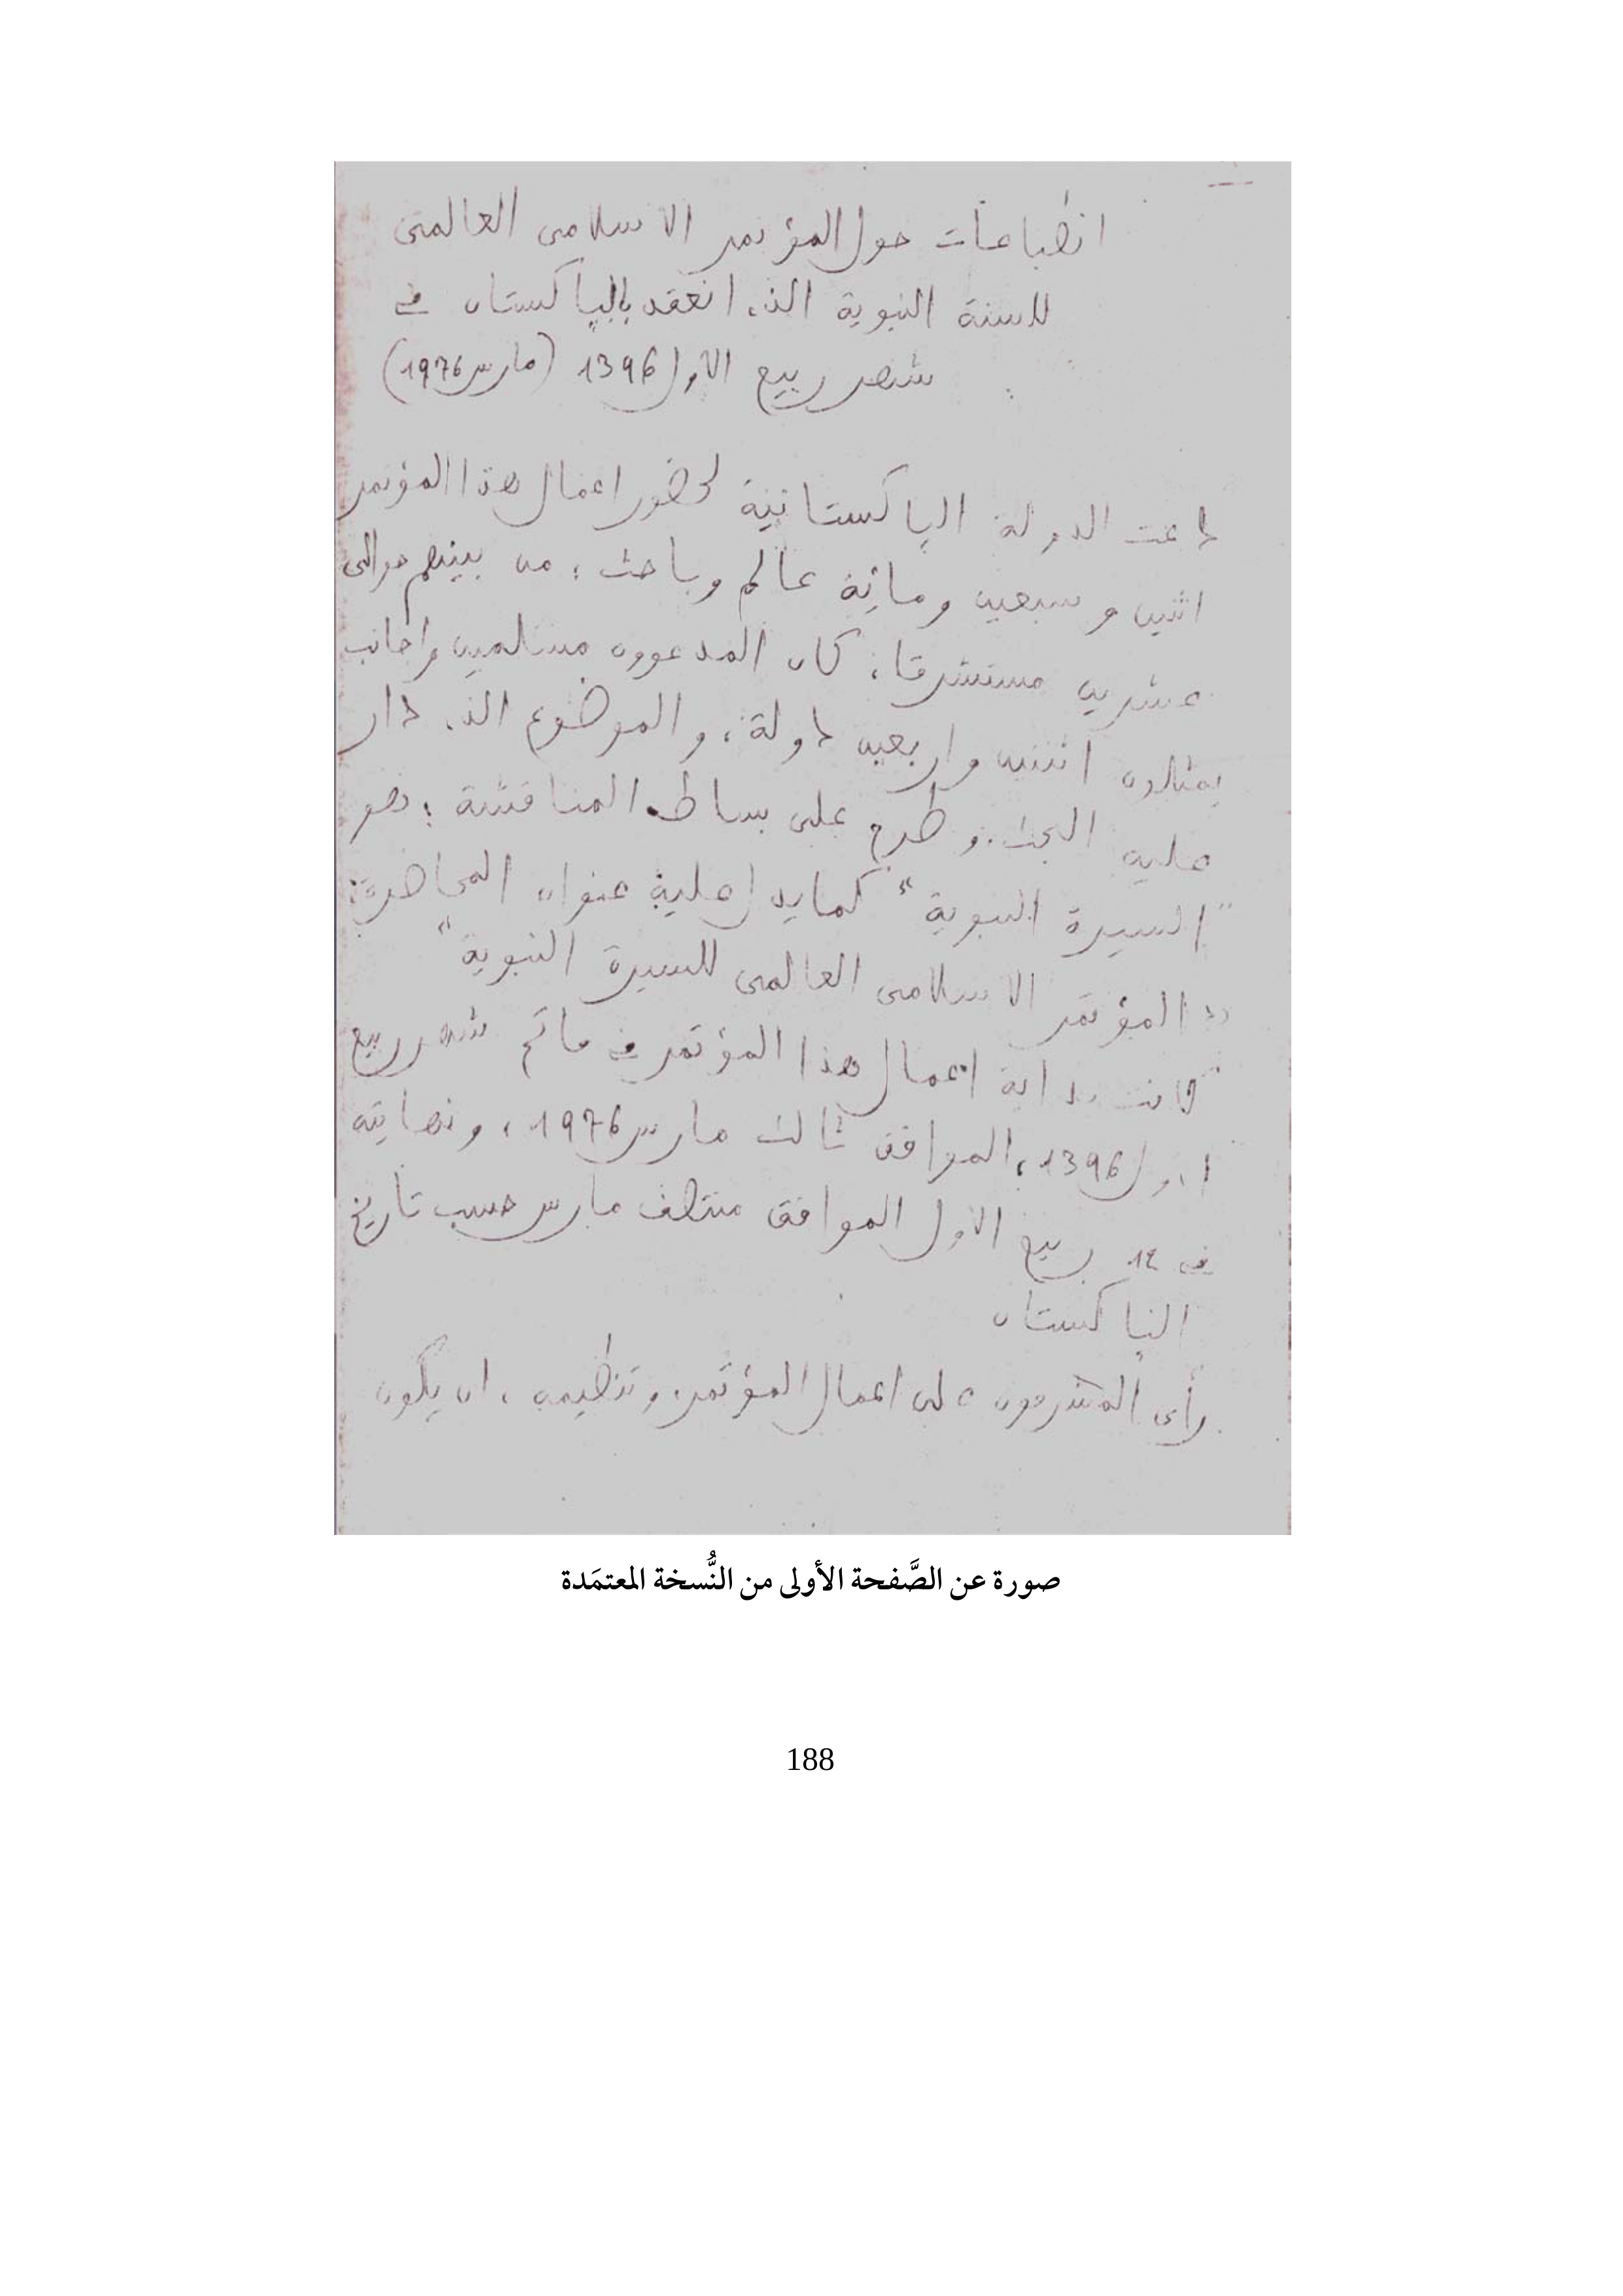 انطباعات حول المؤتمر الاسلامى العالمى
للسنة النبوية الذى انعقد بالباكستان فى
شهر ربيع الاول 1396 (مارس 1976)
دعت الدولة الباكستانية لحضور اعمال هذا المؤتمر
اثنين وسبعين ومائة عالم وباحث؛ من بينهم حوالى
عشرين مستشرقا، كان المدعوون مسلمين واجانب
يمثلون اثنين واربعين دولة، والموضوع الذى دار
عليه البحث. وطرح على بساط المناقشة؛ هو
"السيرة النبوية" كما يدل عليه عنوان المحاضرة:
"المؤتمر الاسلامى العالمى للسيرة النبوية"
كانت بداية اعمال هذا المؤتمر فى فاتح شهر ربيع
الاول 1396، الموافق ثالث مارس 1976، ونهايته
فى 14 ربيع الاول الموافق منتصف مارس حسب تاريخ
الباكستان
رأى المشرفون على اعمال المؤتمر وتنظيمه، ان يكون
صورة عن الصَّفحة الأولى من النُّسخة المعتمَدة
188